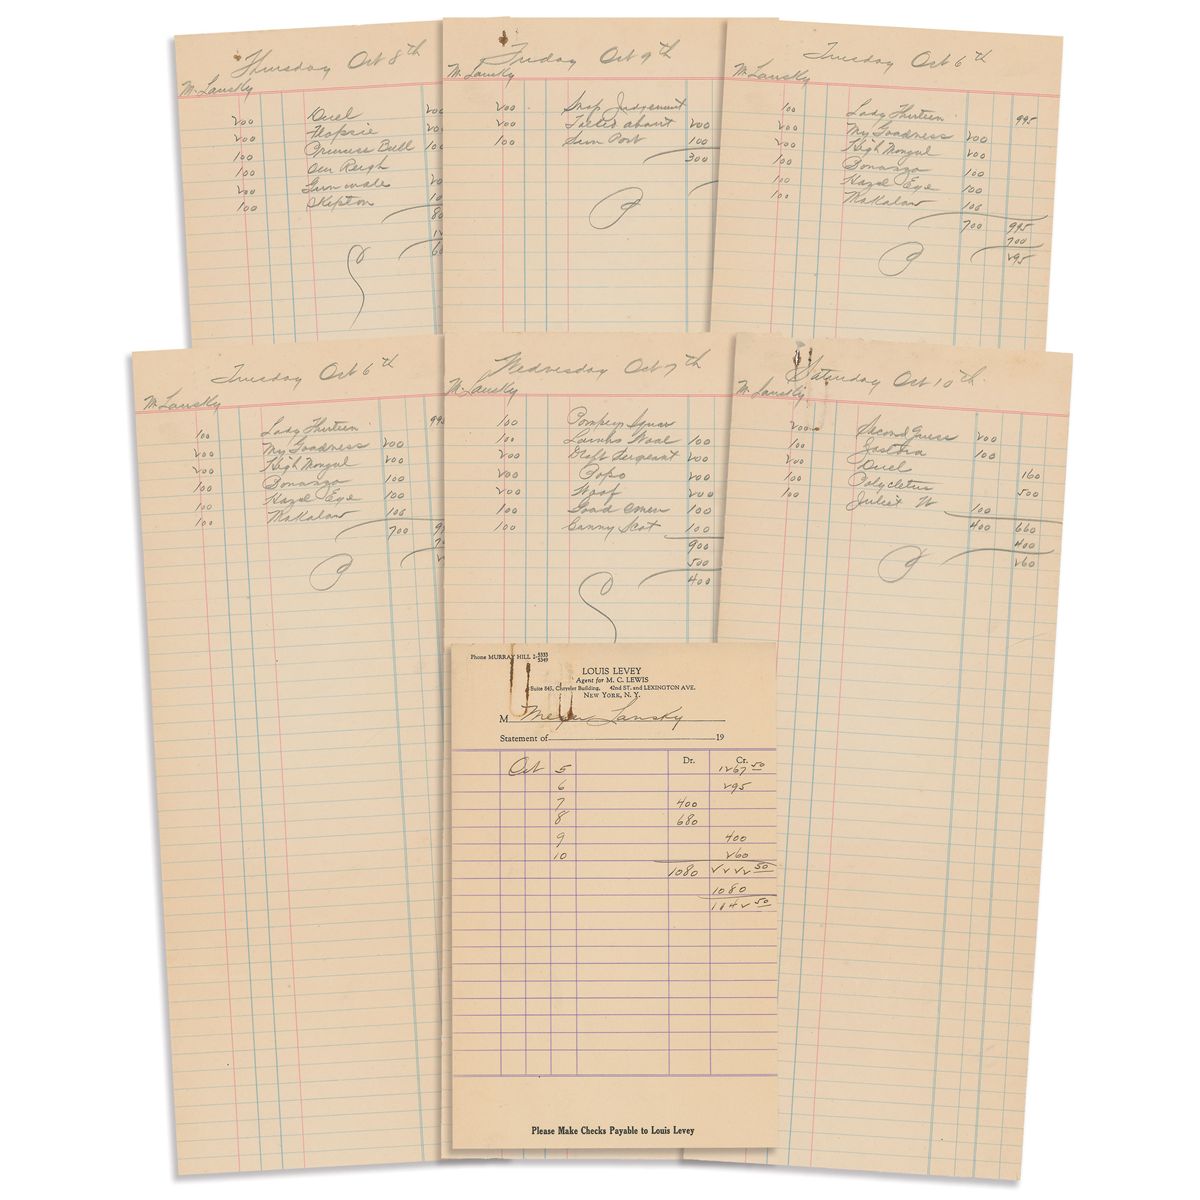 Thursday Oct 8th
M. Lansky
200 Duel 200
200 Flopsie 20
100 Princess Bull 100
100 Our Reigh
200 Gunwale 20
100 Skipton 10
80
12
68
Friday Oct 9th
M. Lansky
200 Snap Judgement
200 Talked about 200
100 Sun Port 100
300
Tuesday Oct 6th
M. Lansky
100 Lady Thirteen 995
200 My Goodness 200
200 High Mongul 200
100 Bonanza 100
100 Hazel Eye 100
100 Makalaw 100
700 995
700
295
Tuesday Oct 6th
M. Lansky
100 Lady Thirteen 995
200 My Goodness 200
200 High Mongul 200
100 Bonanza 100
100 Hazel Eye 100
100 Makalaw 100
700 99
7
2
Wednesday Oct 7th
M. Lansky
100 Pompeys Squar
100 Lambs Wool 100
200 Sergeant 200
200 Popo 200
200 Woof 200
100 100
100 Canny Scot 100
900
500
400
Saturday Oct 10th.
M. Lansky
200 Second Guess 200
100 100
200 Duel 160
100 Polycletus 500
100 Juliet W 100
400 660
400
260
Phone MURRAY HILL 2-5333
5349
LOUIS LEVEY
Agent for M. C. LEWIS
Suite 845, Chrysler Building, 42nd ST. and LEXINGTON AVE.
NEW YORK, N. Y.
M Meyer Lansky
Statement of 19
Dr. Cr.
Oct 5 1267 50
6 295
7 400
8 680
9 400
10 260
1080 2222 50
1080
1142 50
Please Make Checks Payable to Louis Levey